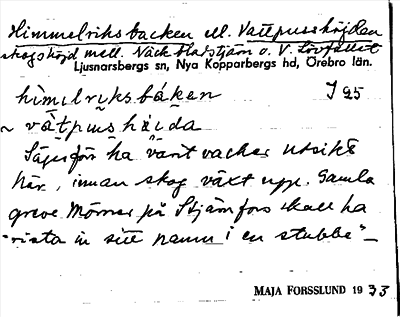 Himmelriksbacken ell. Vattpusshöjden
skogshöjd mell. Näckblästjärn o. V. Lövfallet
Ljusnarsbergs sn, Nya Kopparbergs hd, Örebro län.
himelriksbáken J 25
~ vàtpushö̀ida
Säges för ha varit vacker utsikt
här, innan skog växt upp. Gamla
greve Mörner på Stjärnfors skall ha
"rista in sitt namn i en stubbe"_
MAJA FORSSLUND 1933